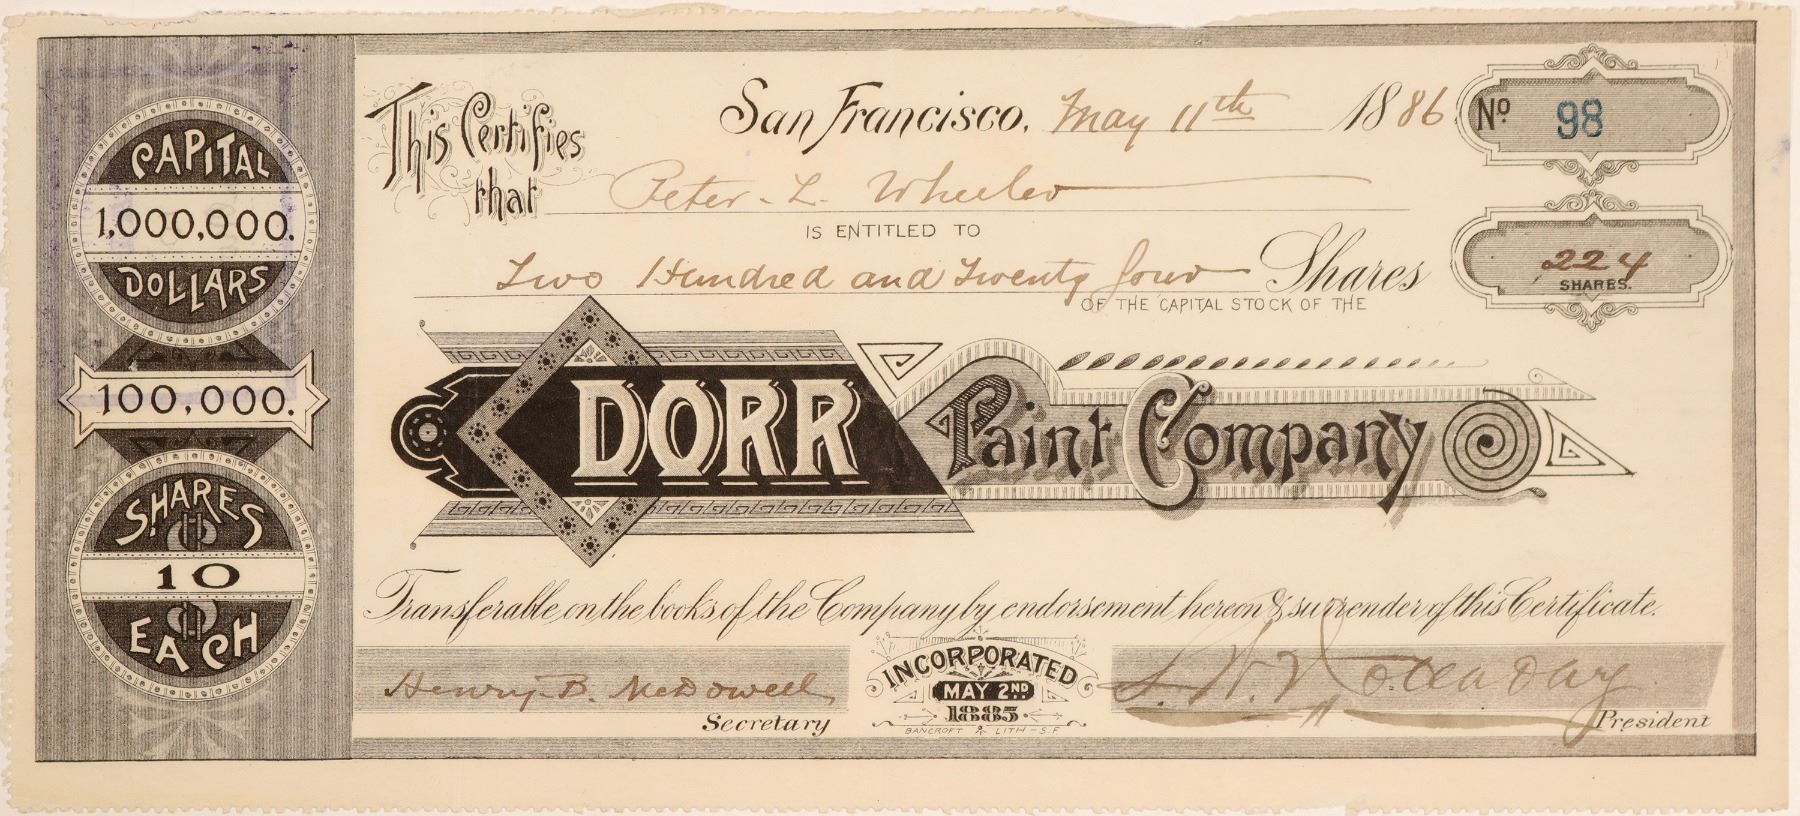 CAPITAL
1,000,000.
DOLLARS
100,000.
SHARES
10
EACH
This Certifies
that
San Francisco, May 11th 1886
No 98
Peter. L. Wheeler
IS ENTITLED TO
Two Hundred and Twenty four Shares
224
SHARES.
OF THE CAPITAL STOCK OF THE
DORR Paint Company
Transferable on the books of the Company by endorsement hereon & surrender of this Certificate.
Henry B. McDowell
Secretary
INCORPORATED
MAY 2ND
1885
BANCROFT LITH-S.F
President